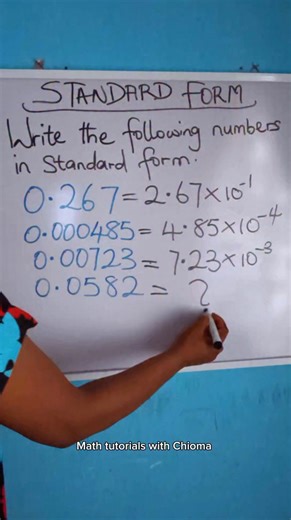 STANDARD FORM
Write the following numbers
in Standard form.
0.267 = 2.67×10⁻¹
0.000485 = 4.85×10⁻⁴
0.00723 = 7.23×10⁻³
0.0582 = ?
Math tutorials with Chioma